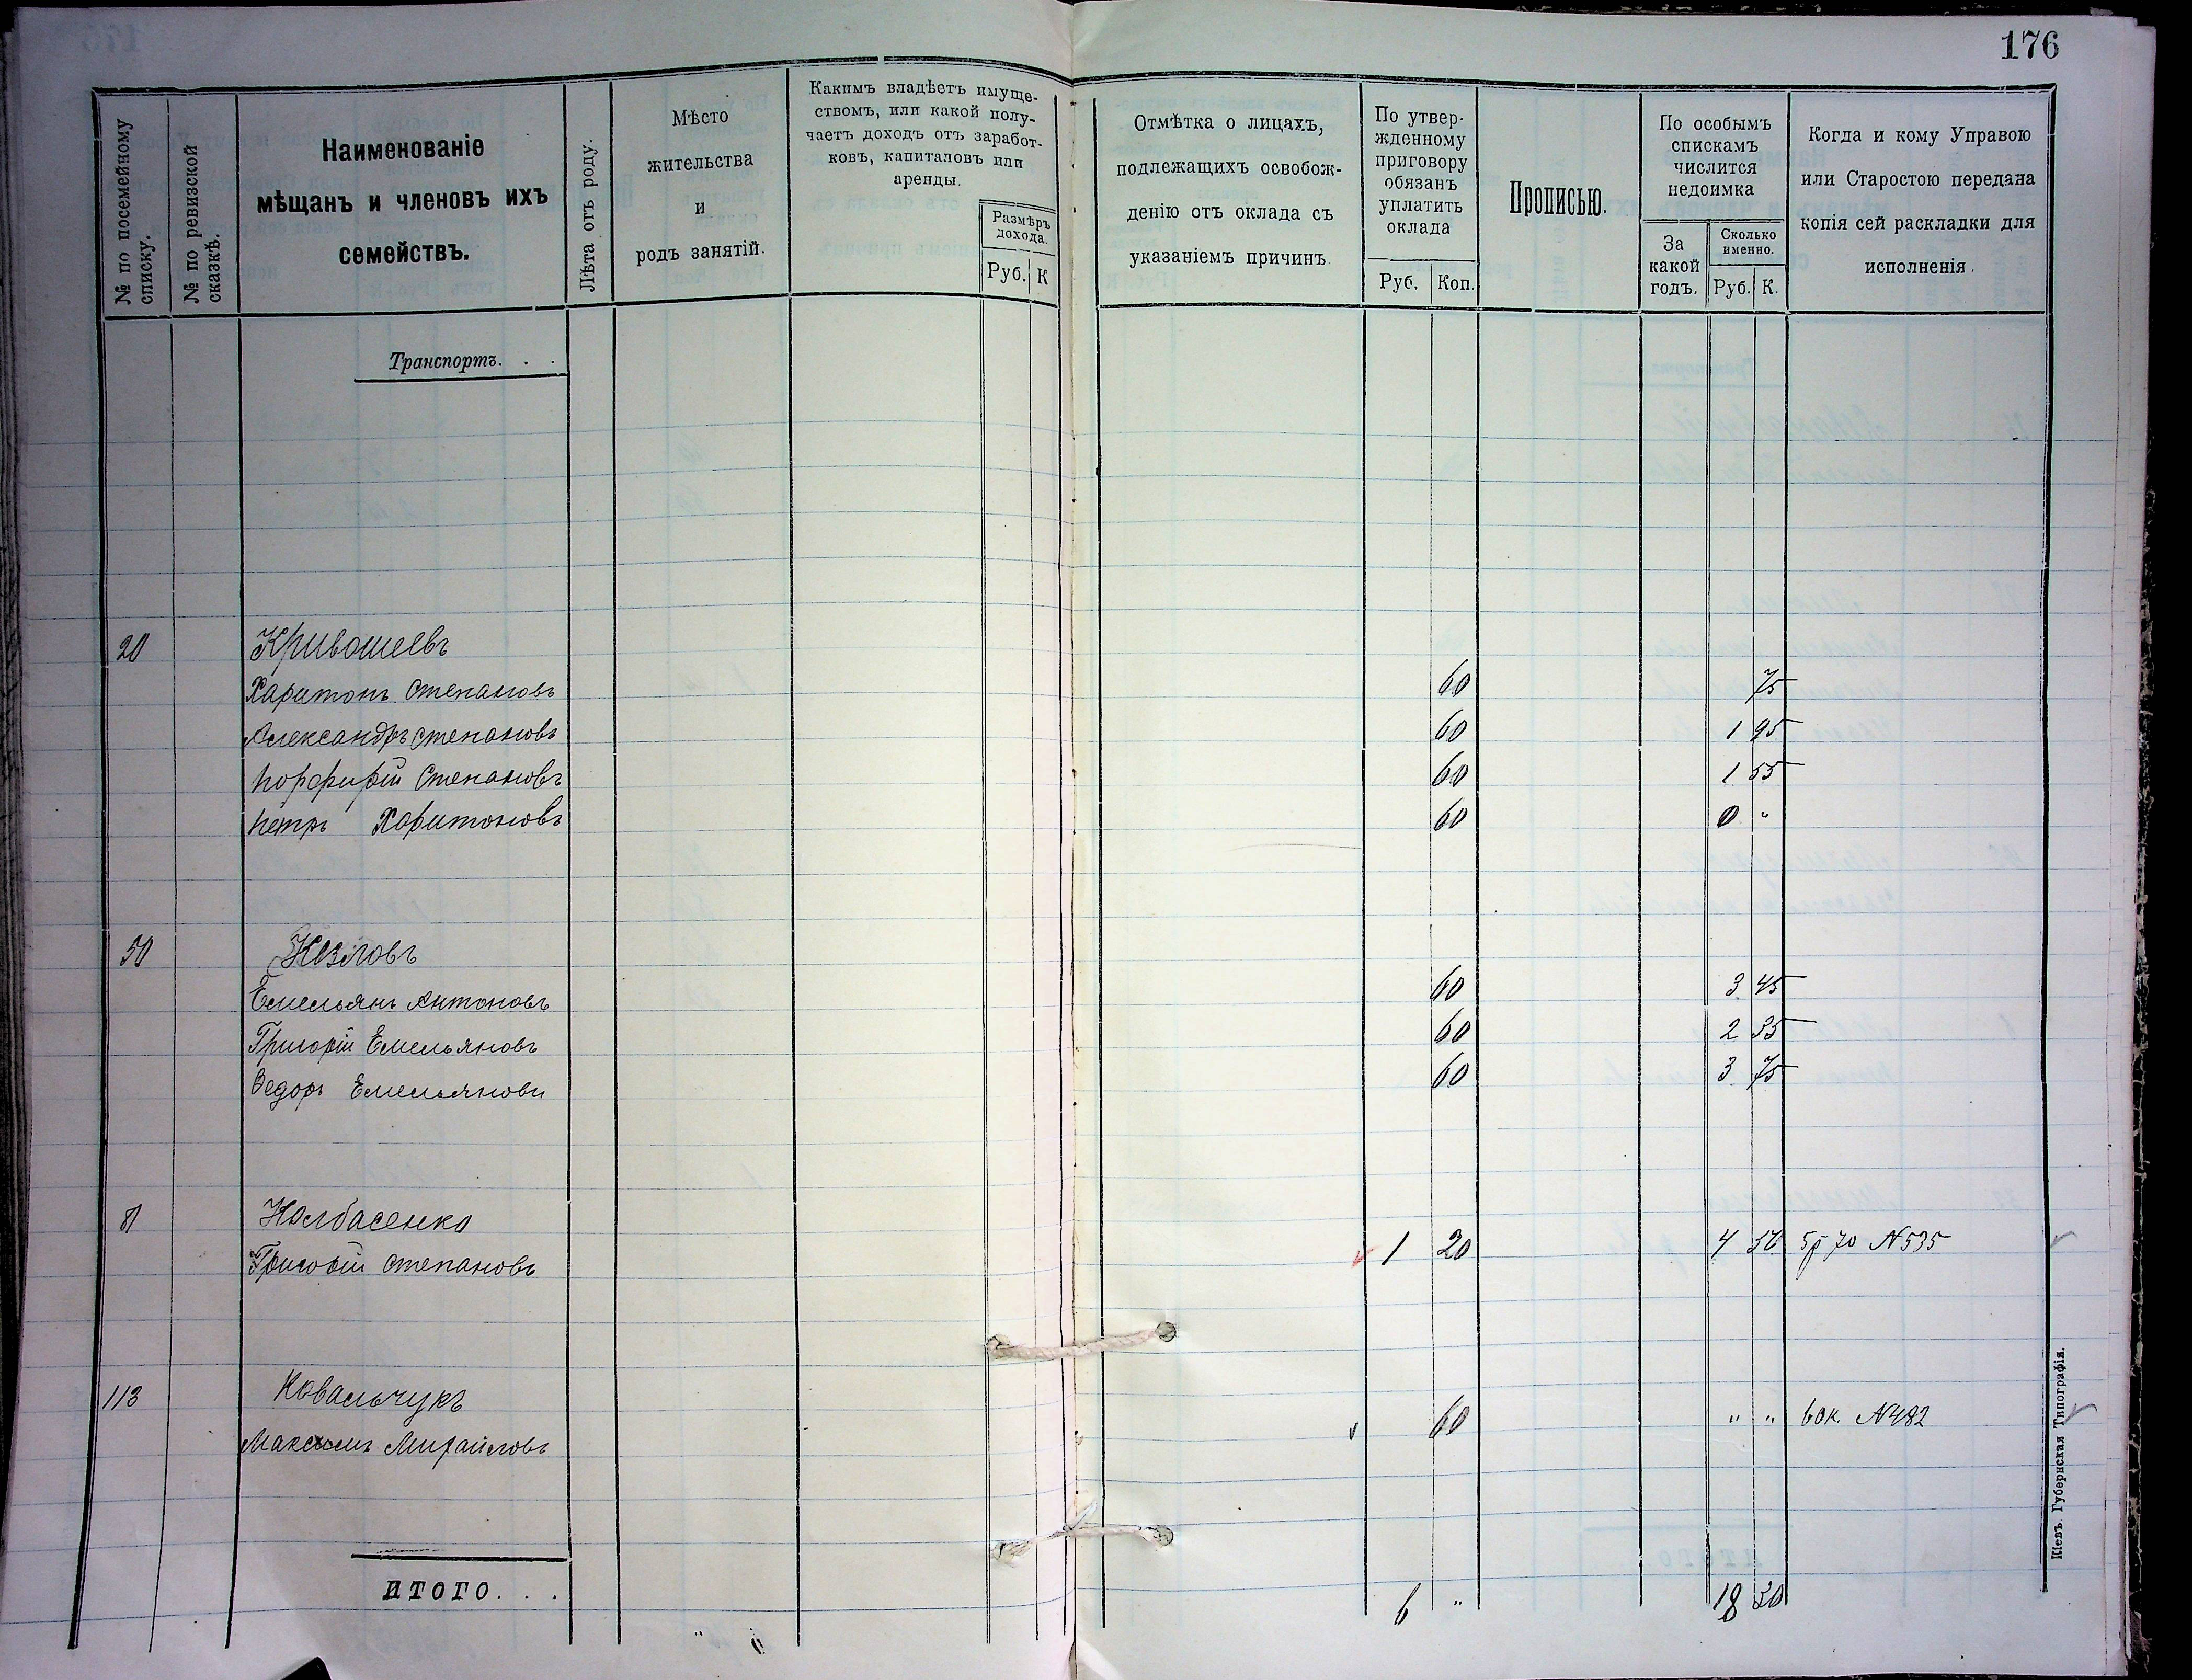 176
№ по посемейному списку.
№ по ревизской сказкѣ.
Наименованіе
мѣщанъ и членовъ ихъ
семействъ.
Лѣта отъ роду.
Мѣсто
жительства
и
родъ занятій.
Какимъ владѣетъ имуще-
ствомъ, или какой полу-
чаетъ доходъ отъ заработ-
ковъ, капиталовъ или
аренды.
Размѣръ
дохода.
Руб. К
Отмѣтка о лицахъ,
подлежащихъ освобож-
денію отъ оклада съ
указаніемъ причинъ.
По утвер-
жденному
приговору
обязанъ
уплатить
оклада
Руб. Коп.
Прописью.
По особымъ
спискамъ
числится
недоимка
За
какой
годъ.
Сколько
именно.
Руб. К.
Когда и кому Управою
или Старостою передана
копія сей раскладки для
исполненія.
Транспортъ. . .
20 Кривошеевъ
Харитонъ Степановъ 60 75
Александръ Степановъ 60 1 95
Порфирій Степановъ 60 1 55
Петръ Харитоновъ 60 0 "
50 Козловъ
Емельянъ Антоновъ 60 3 45
Григорій Емельяновъ 60 2 35
Федоръ Емельяновъ 60 3 75
Колбасенко
Григорій Степановъ 1 20 4 50 5р 70 №535
113 Ковальчукъ
Максимъ Михайловъ 60 " " 60к. №482
ИТОГО. . . 6 " 18 30
Кіевъ. Губернская Типографія.